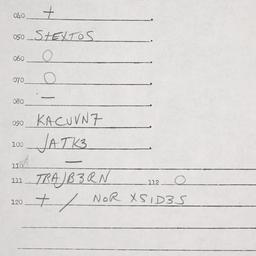 040 +
050 StEXTOS
060 O
070 O
080 —
090 KACUVN7
100 JATK3
110 —
111 TRAJB3RN 112 O
120 + / NOR XSID3S